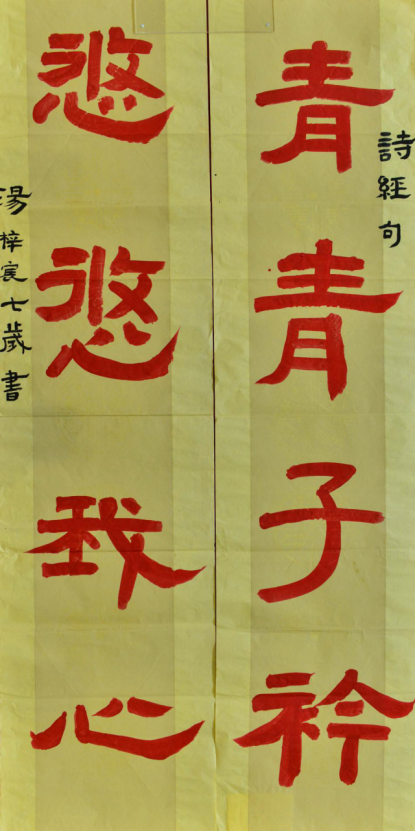 詩經句
青青子衿
悠悠我心
湯梓宸七歲書